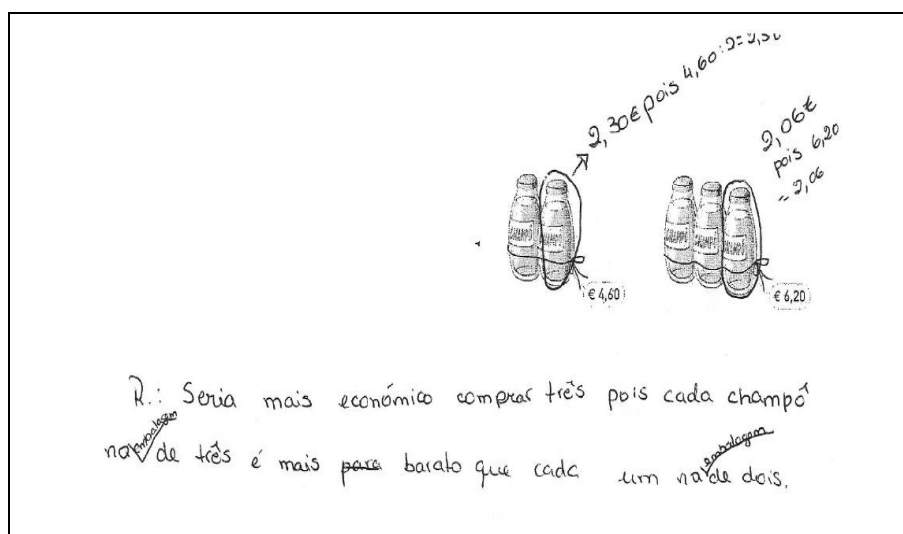 2,30€ pois 4,60:2=2,30
2,06€
pois 6,20
2,06
€ 4,60
€ 6,20
R.: Seria mais económico comprar três pois cada champô
na embalagem de três é mais para barato que cada um na embalagem de dois.